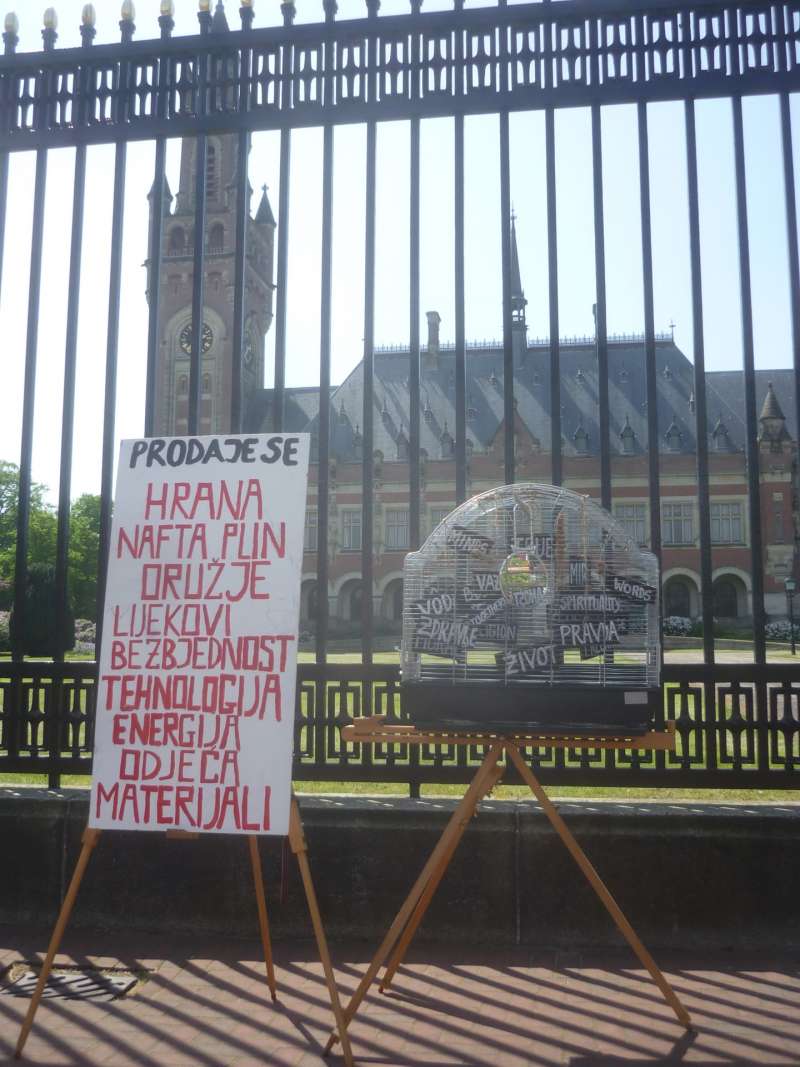 PRODAJE SE
HRANA
NAFTA PLIN
ORUŽJE
LIJEKOVI
BEZBJEDNOST
TEHNOLOGIJA
ENERGIJA
ODJEĆA
MATERIJALI
MIR
WORDS
VODA
SPIRITUALITY
ZDRAVLJE
PRAVDA
ŽIVOT